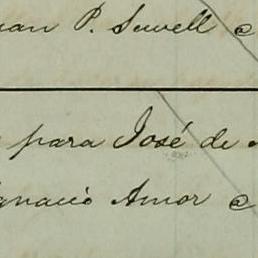 uan P. Sewell @
para José de
gnacio Amor @